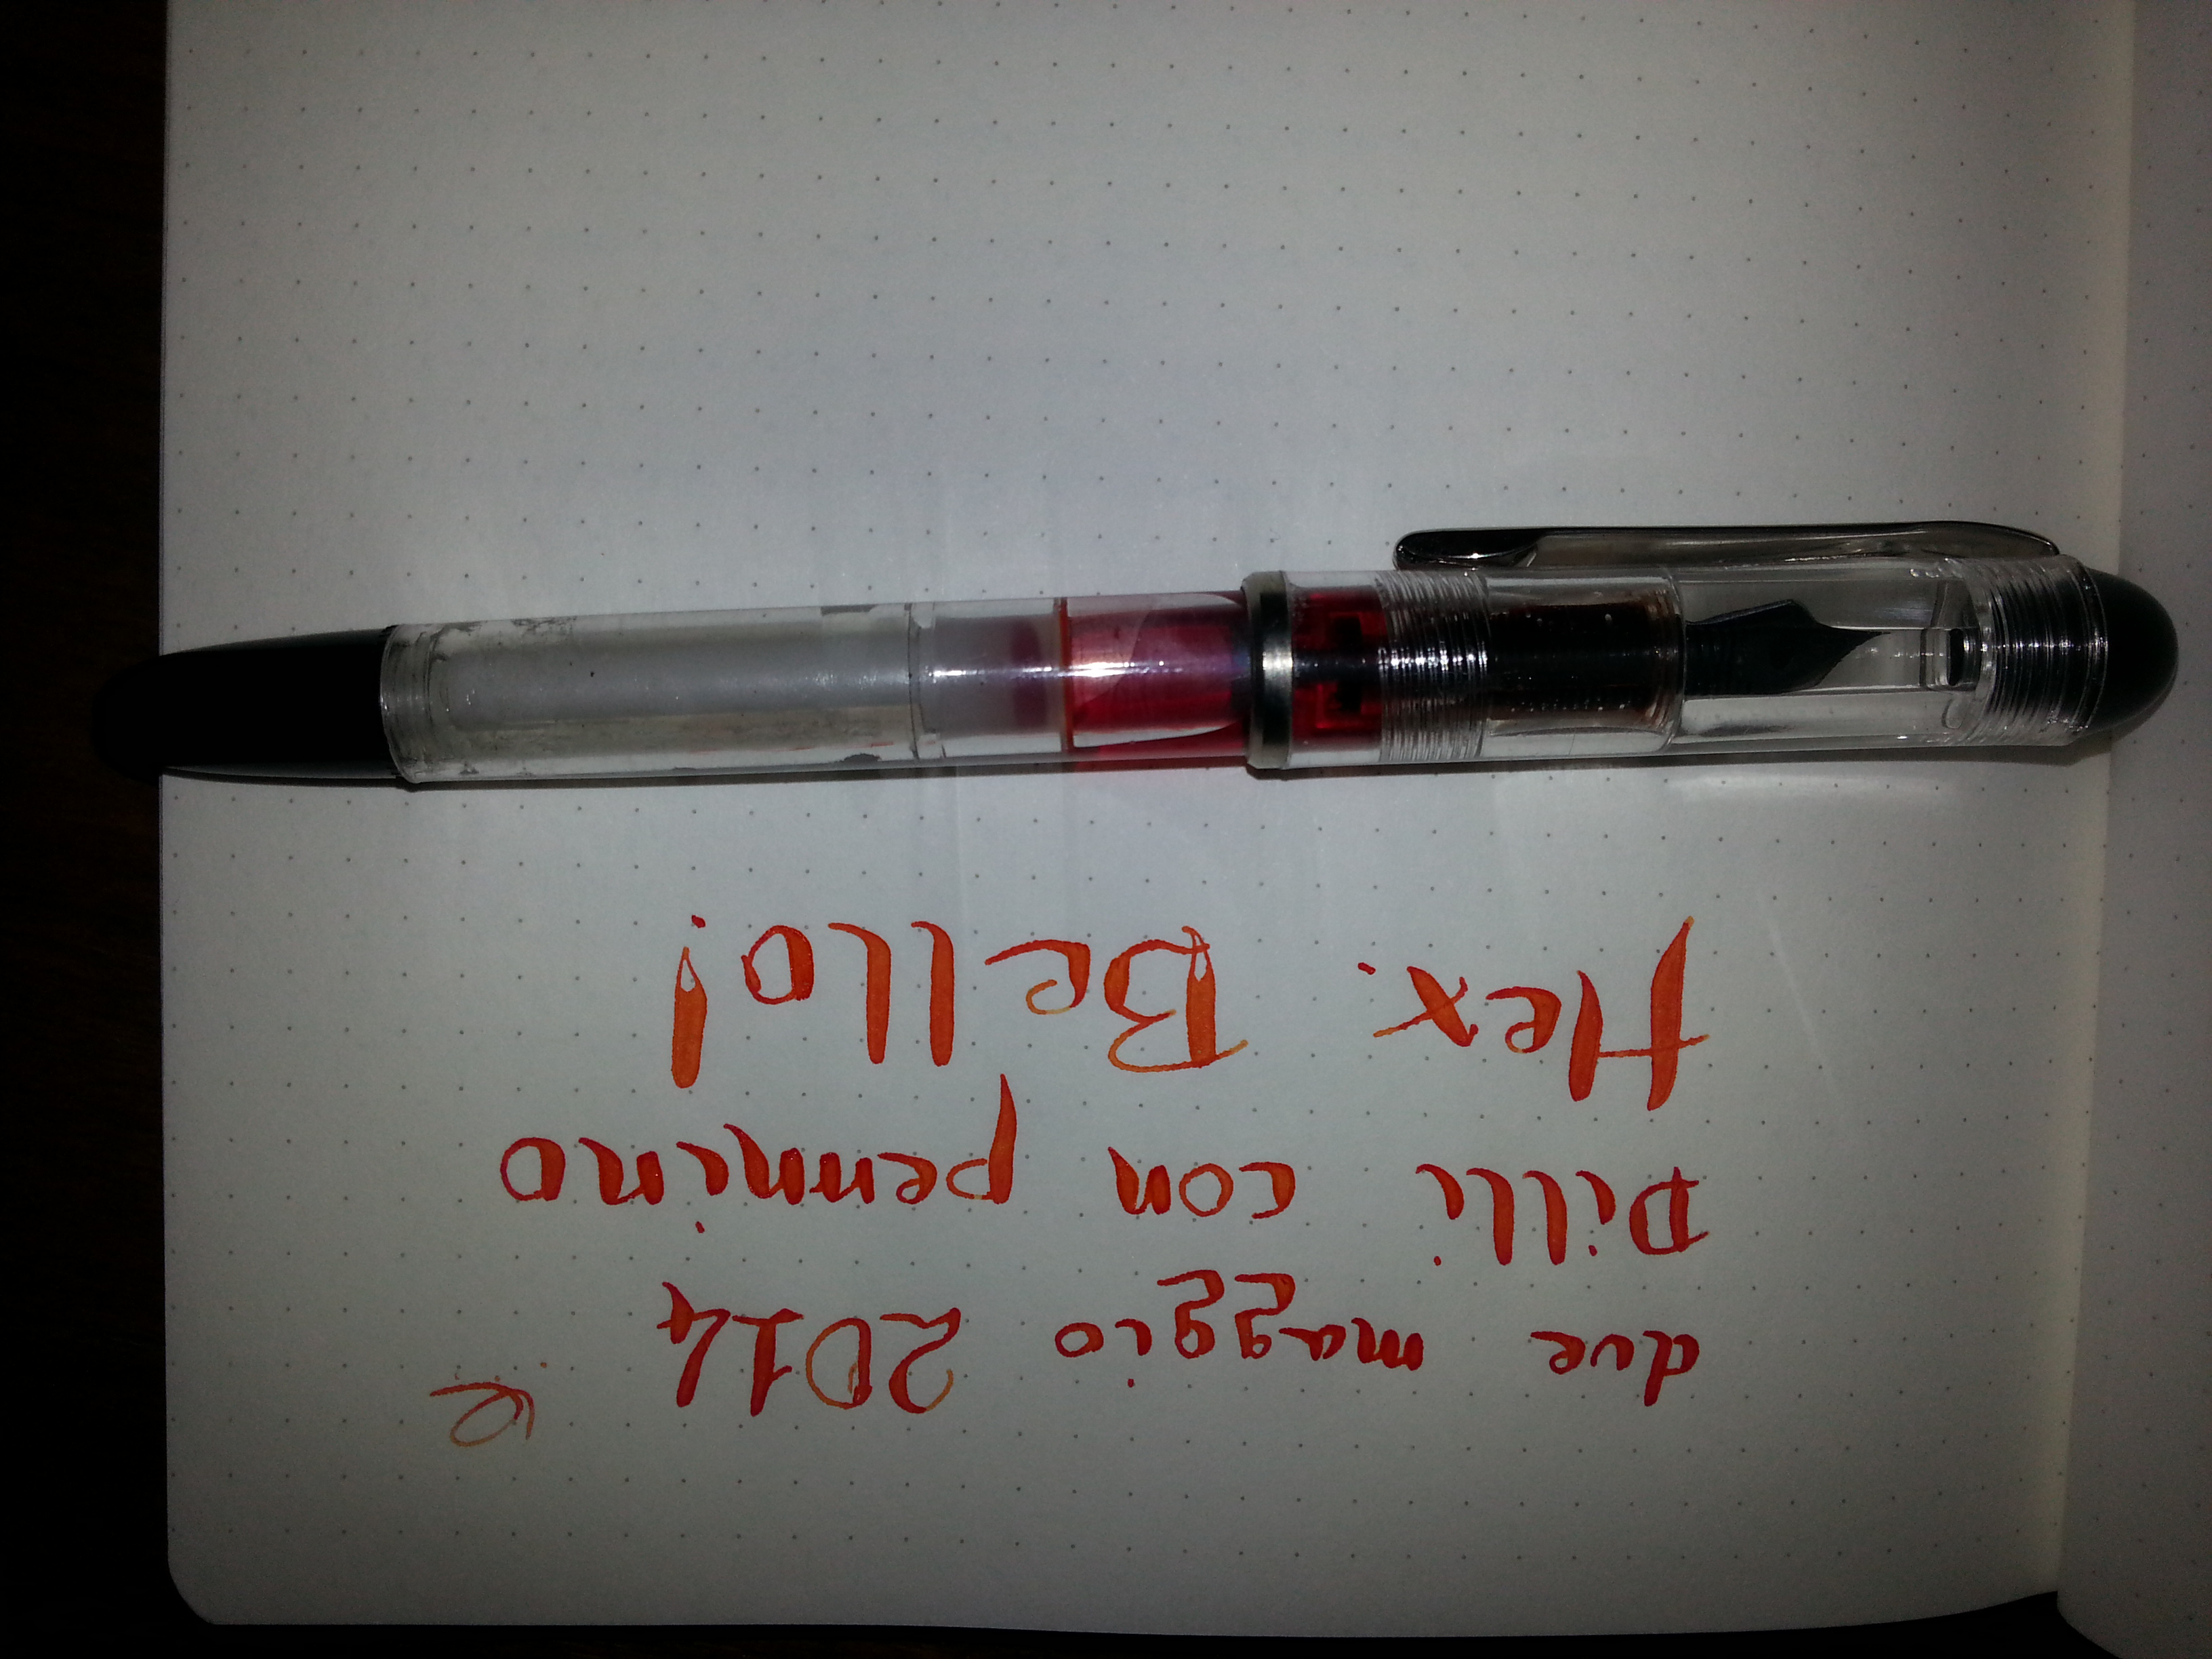 due maggio 2014
Dilli con pennino
flex. Bello!